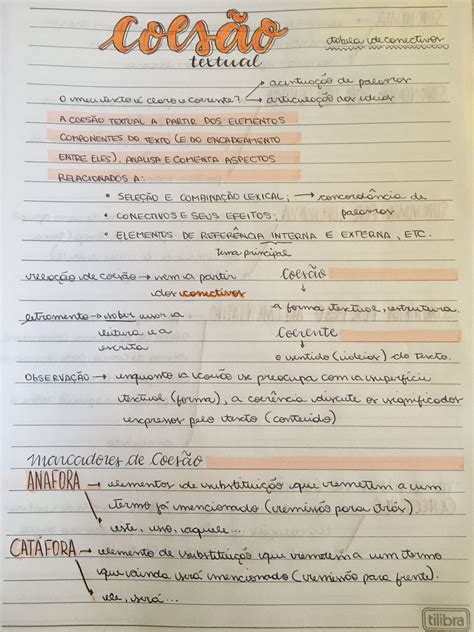 Coesão
textual
tabela de conectivos
acentuação de palavras
O meu texto é claro e coerente? → articulação nas ideias
A COESÃO TEXTUAL A PARTIR DOS ELEMENTOS
COMPONENTES DO TEXTO (E DO ENCADEAMENTO
ENTRE ELES), ANALISA E COMENTA ASPECTOS
RELACIONADOS A:
• SELEÇÃO E COMBINAÇÃO LEXICAL; → concordância de
• CONECTIVOS E SEUS EFEITOS; palavras
• ELEMENTOS DE REFERÊNCIA INTERNA E EXTERNA, ETC.
tema principal
relação de coesão → vem a partir
dos conectivos
Coesão
a forma textual, estrutura.
letramento → saber usar a
leitura e a
escrita
Coerente
o sentido (ideias) do texto.
OBSERVAÇÃO → enquanto a coesão se preocupa com a superfície
textual (forma), a coerência discute os significados
expressos pelo texto (conteúdo)
Marcadores de Coesão
ANAFORA → elementos de substituição que remetem a um
termo já mencionado (remissão para trás)
este, isso, aquele...
CATÁFORA → elemento de substituição que remetem a um termo
que ainda será mencionado (remissão para frente).
ele, será...
tilibra